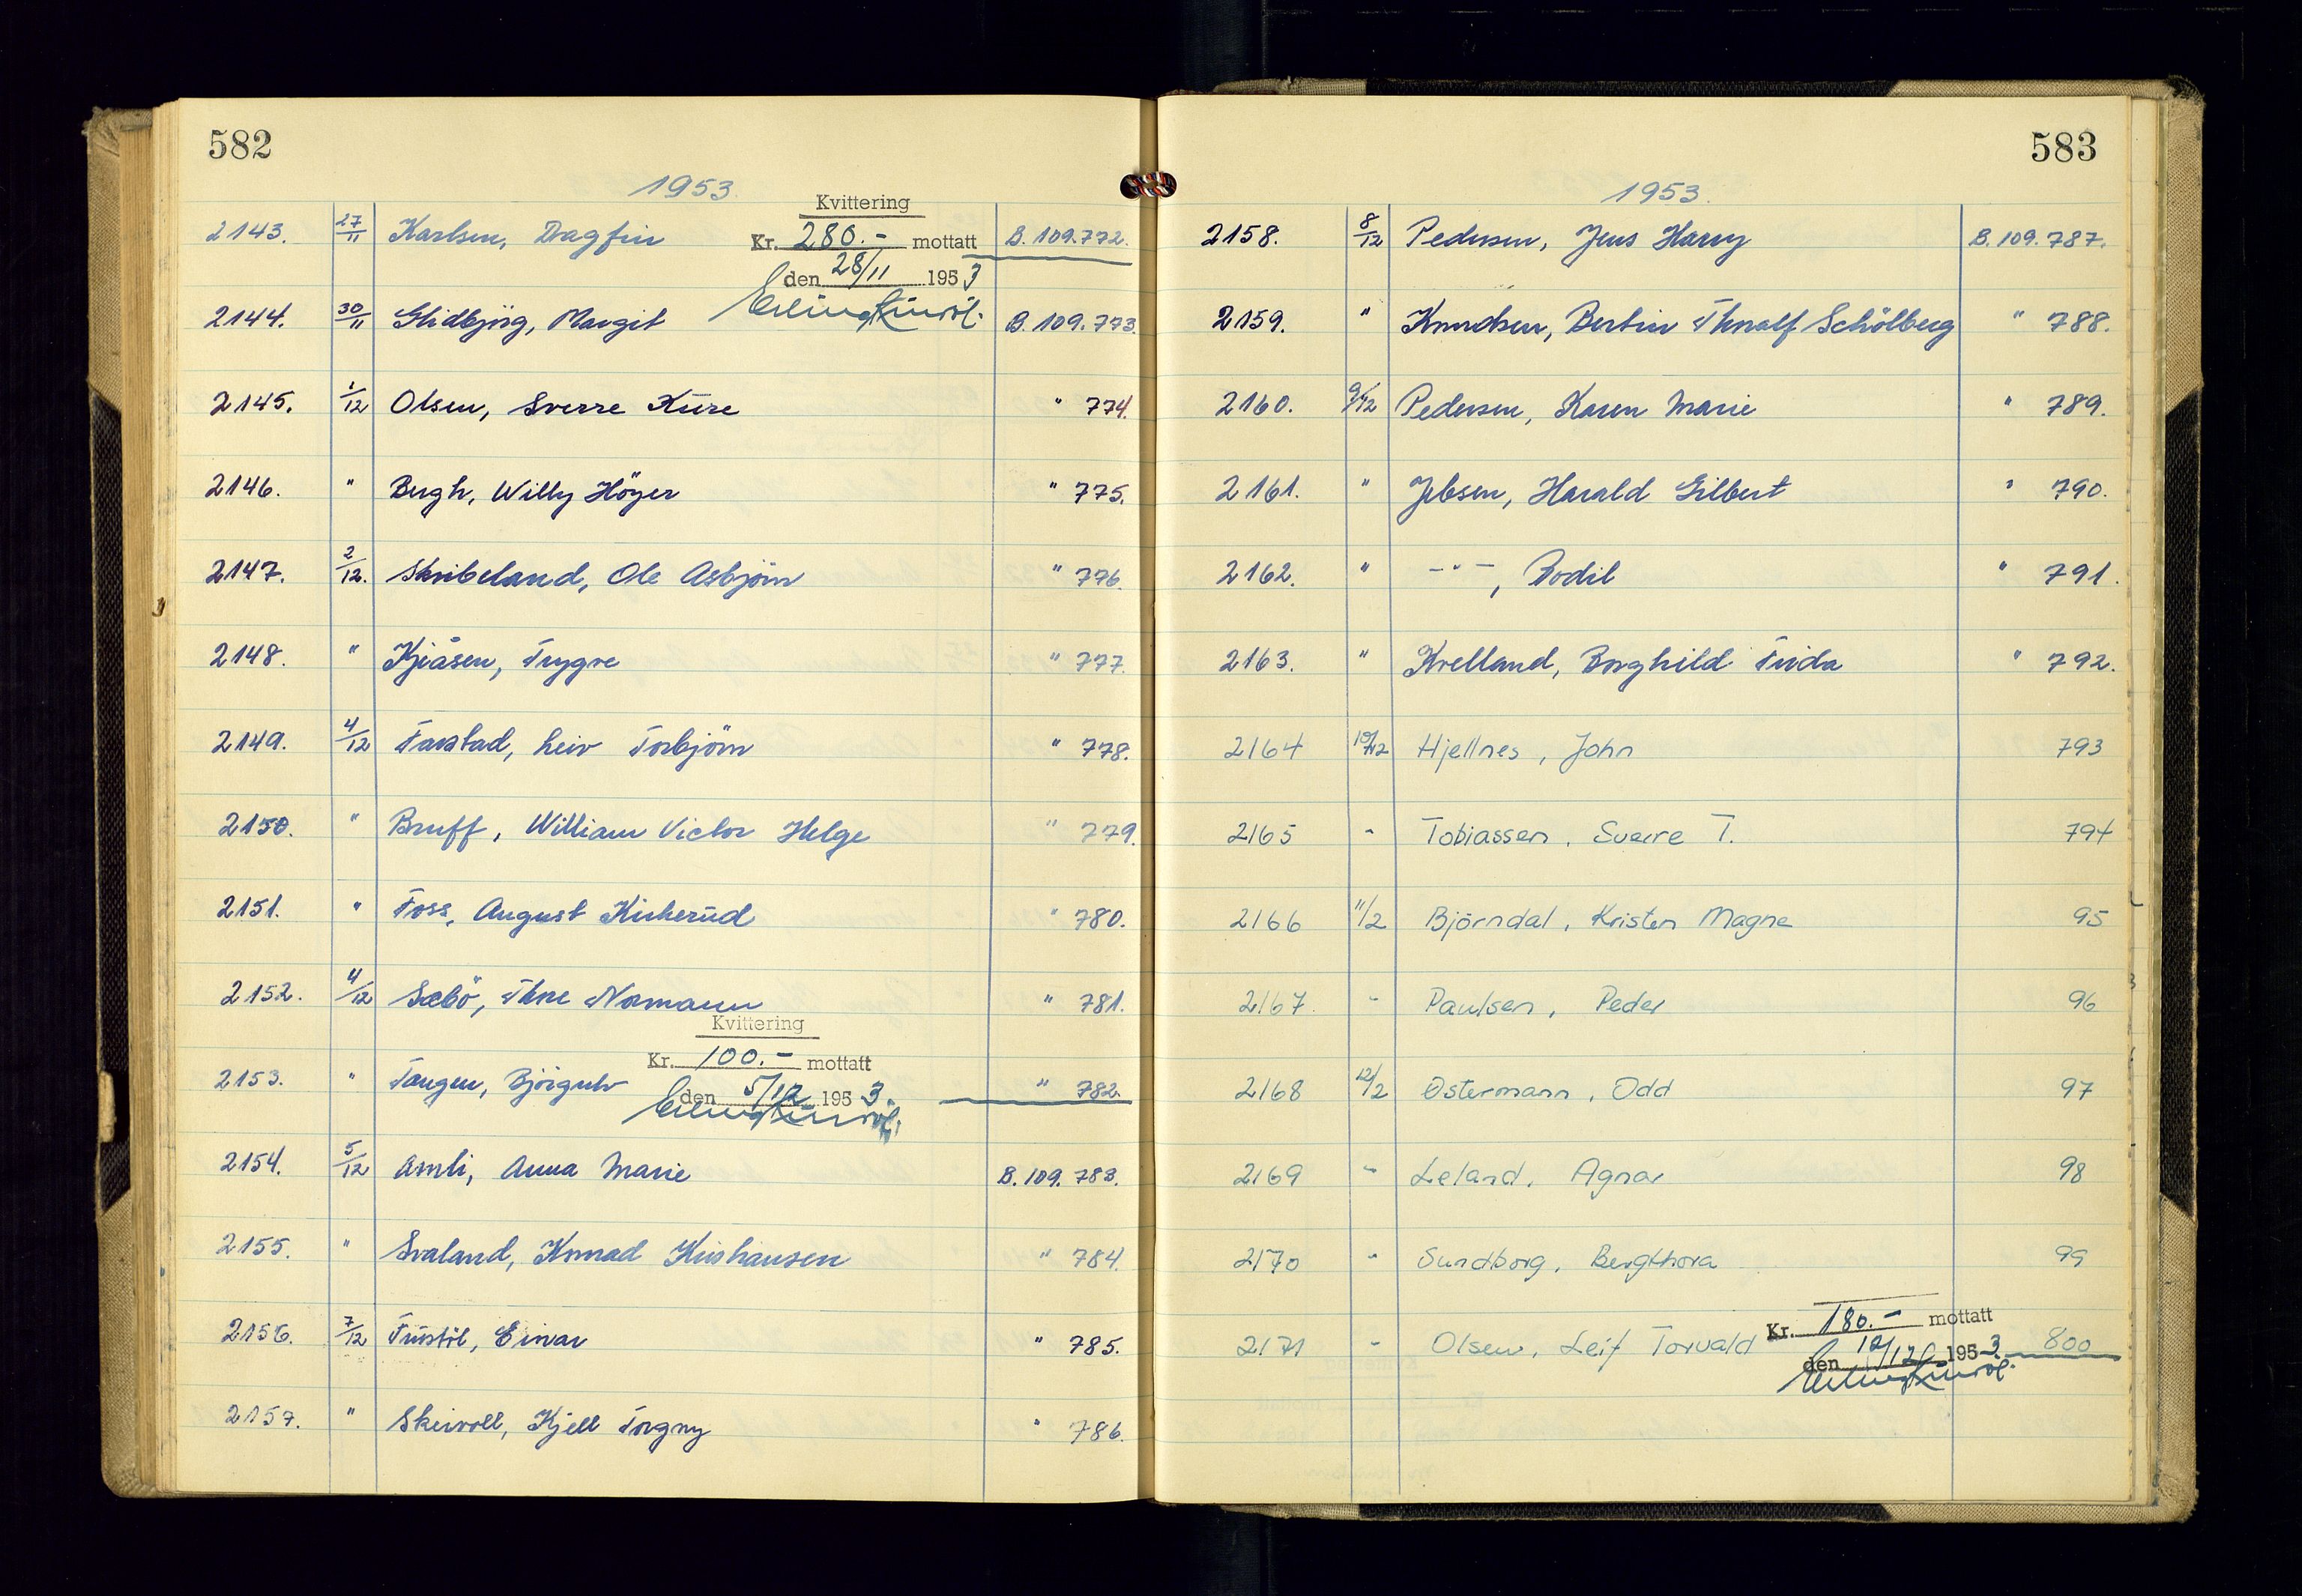 582
1953.
Kvittering
2143. 27/11 Karlsen, Dagfin Kr. 280.- mottatt B. 109.772.
den 28/11 1953
2144. 30/11 Glidbjörg, Margit B. 109.773.
2145. 1/12 Olsen, Sverre Kure " 774.
2146. " Bergh, Willy Höyer " 775.
2147. 2/12. Skribeland, Ole Asbjörn " 776.
2148. " Kjiåsen, Trygve " 777.
2149. 4/12 Farstad, Leiv Torbjörn " 778.
2150. " Bruff, William Victor Helge " 779.
2151. " Foss, August Kirkerud " 780.
2152. 4/12 Sæbö, Thore Normann " 781.
Kvittering
Kr. 100.- mottatt
2153. " Tangen, Björgulv " 782.
den 5/12 1953.
2154. 5/12 Åmli, Anna Marie B. 109. 783.
2155. " Svaland, Konrad Kristiansen " 784.
2156. 7/12 Trustöl, Einar " 785.
2157. " Skeivoll, Kjell Torgny " 786.
583
1953.
2158. 8/12 Pedersen, Jens Harry B. 109. 787.
2159. " Knudsen, Bertin Thoralf Schölberg " 788.
2160. 9/12 Pedersen, Karen Marie " 789.
2161. " Jebsen, Harald Gilbert " 790.
2162. " -"-, Bodil " 791.
2163. " Kvelland, Borghild Frida " 792.
2164 10/12 Hjellnes, John 793
2165 - Tobiassen, Sverre T. 794
2166 11/2 Björndal, Kristen Magne 95
2167. - Paulsen, Peder 96
2168 12/2 Østermann, Odd 97
2169 - Leland, Agnar 98
2170 - Sundborg, Bergthora 99
Kr. 180.- mottatt
2171 - Olsen, Leif Torvald 800
den 12/12 1953